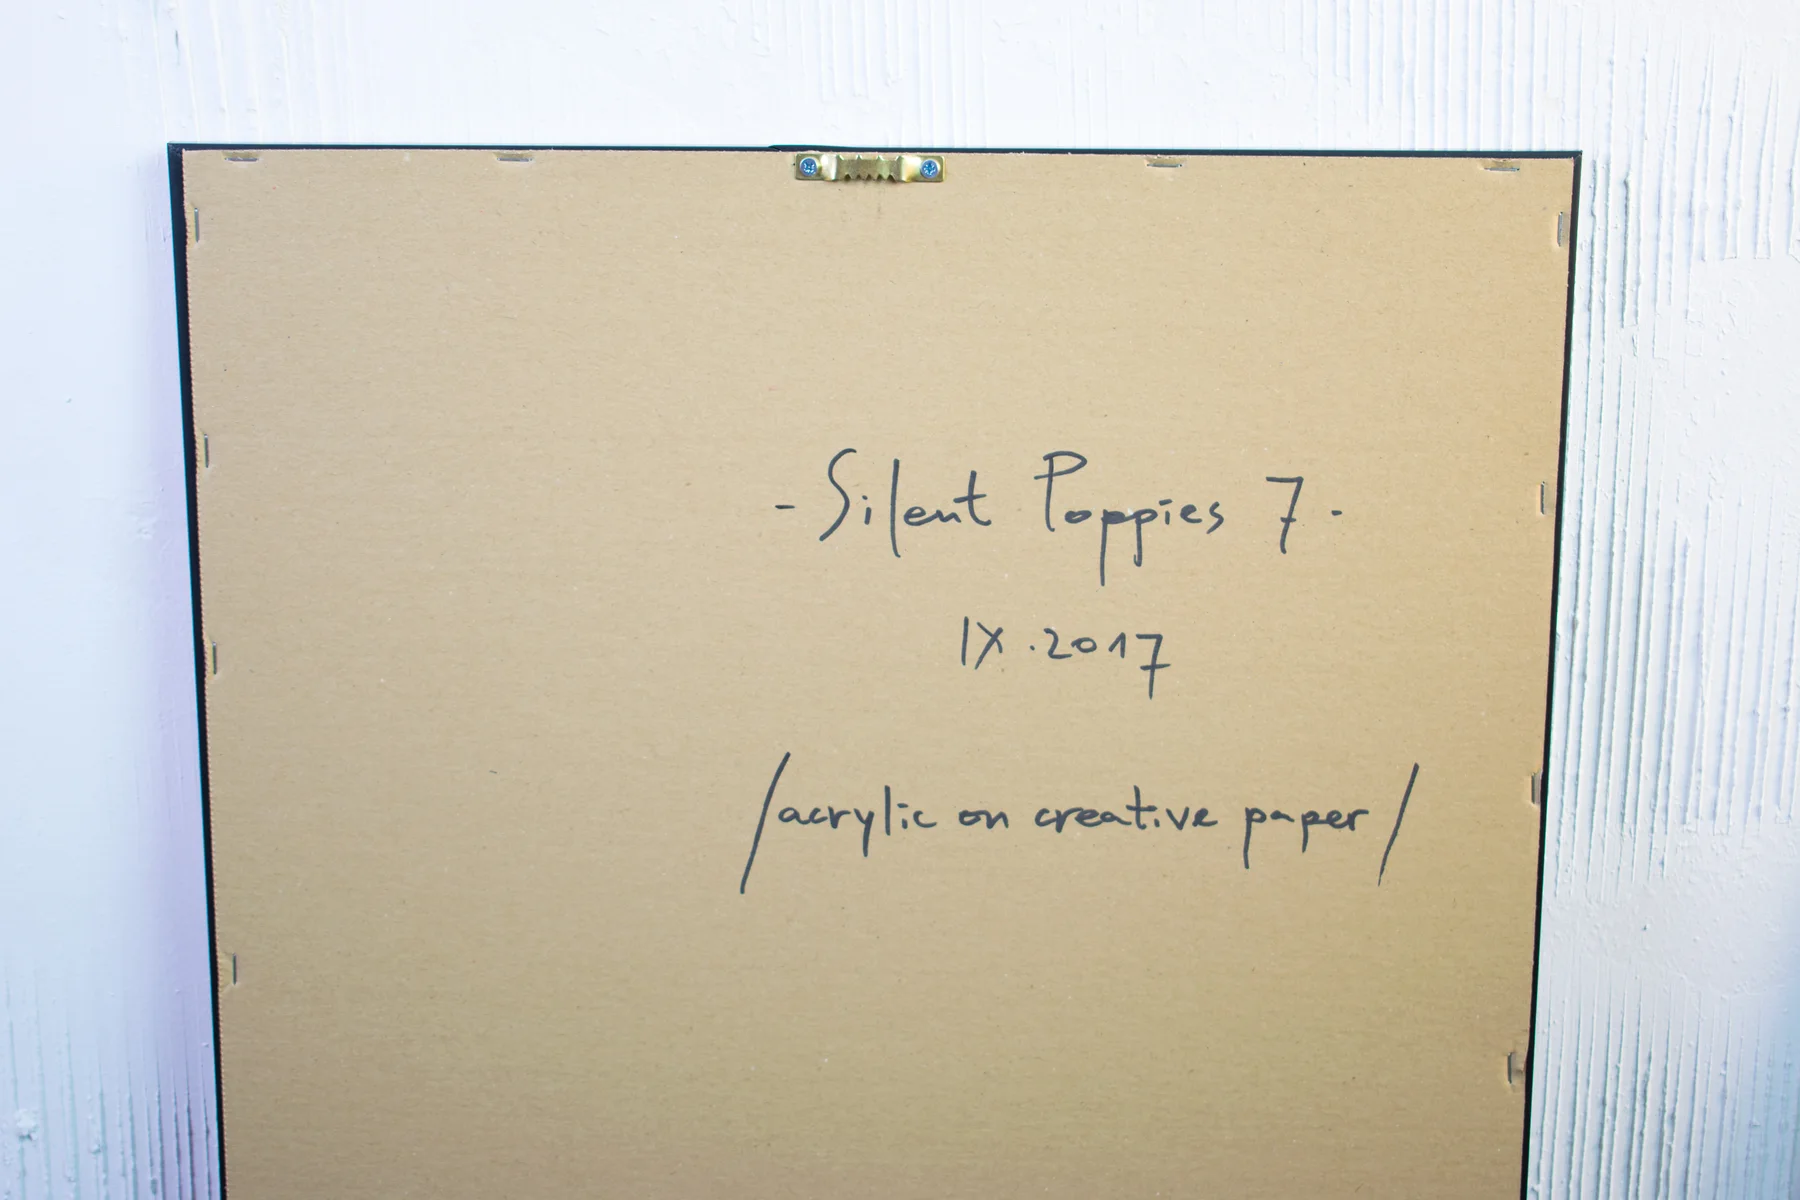 - Silent Poppies 7 -
IX.2017
/acrylic on creative paper/